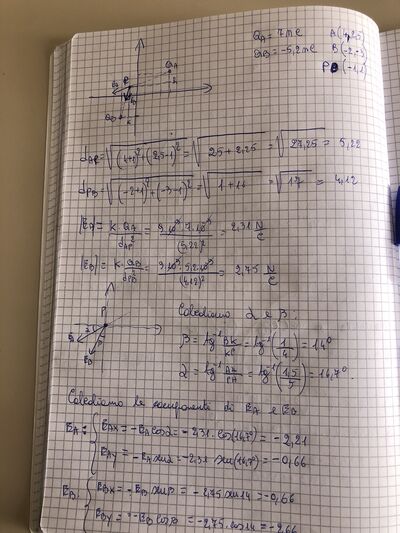 QA = 7 nC A(4; 2,5)
QB = -5,2 nC B(-2,-3)
P (-1,1)
dAP = √(4+1)² + (2,5-1)² = √25 + 2,25 = √27,25 = 5,22
dPB = √(-2+1)² + (-3-1)² = √1 + 16 = √17 = 4,12
|EA| = K·QA/dAP² = 9·10⁹·7·10⁻⁹/(5,22)² = 2,31 N/C
|EB| = K·QB/dPB² = 9·10⁹·5,2·10⁻⁹/(4,12)² = 2,75 N/C
P
EA
EB
Calcoliamo α e β:
β = tg⁻¹ BK/KP = tg⁻¹(1/4) = 14°
α = tg⁻¹ AH/PH = tg⁻¹(1,5/5) = 16,7°
Calcoliamo le componenti di EA e EB
EA: { EAX = -EA cosα = -2,31·cos(16,7°) = -2,21
EAY = -EA sinα = -2,31 sin(16,7°) = -0,66
EB: { EBX = -EB sinβ = -2,75 sin14 = -0,66
EBY = -EB cosβ = -2,75·cos14 = -2,66